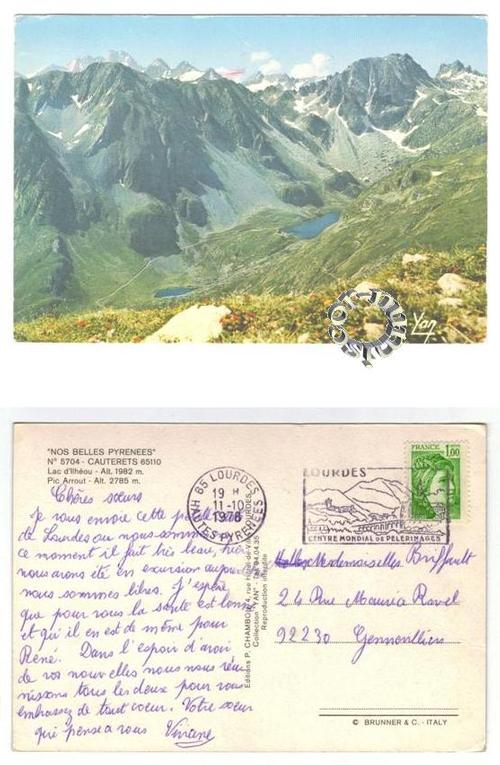 Yan
"NOS BELLES PYRENEES"
N° 5704 - CAUTERETS 65110
Lac d'Ilhéou - Alt. 1982 m.
Pic Arrout - Alt. 2785 m.
Chères sœurs
Je vous envoie cette
de Lourdes ou nous sommes
ce moment il fait très beau, hier
nous avons été en excursion
nous sommes libres. J'espère
que pour vous la santé est bonne
et qu'il en est de même pour
René. Dans l'espoir d'avoir
de vos nouvelles nous nous réu
nissons tous les deux pour vous
embrasser de tout cœur. Votre sœur
qui pense a vous Viviane
65 LOURDES
19 H
11-10
1978
HAUTES PYRENEES
LOURDES
CENTRE MONDIAL DE PELERINAGES
FRANCE
1,00
Editions P. CHAMBON
Collection "YAN"
Reproduction interdite
Mesdemoiselles Briffault
24 Rue Maurice Ravel
92230 Gennevilliers
© BRUNNER & C. - ITALY